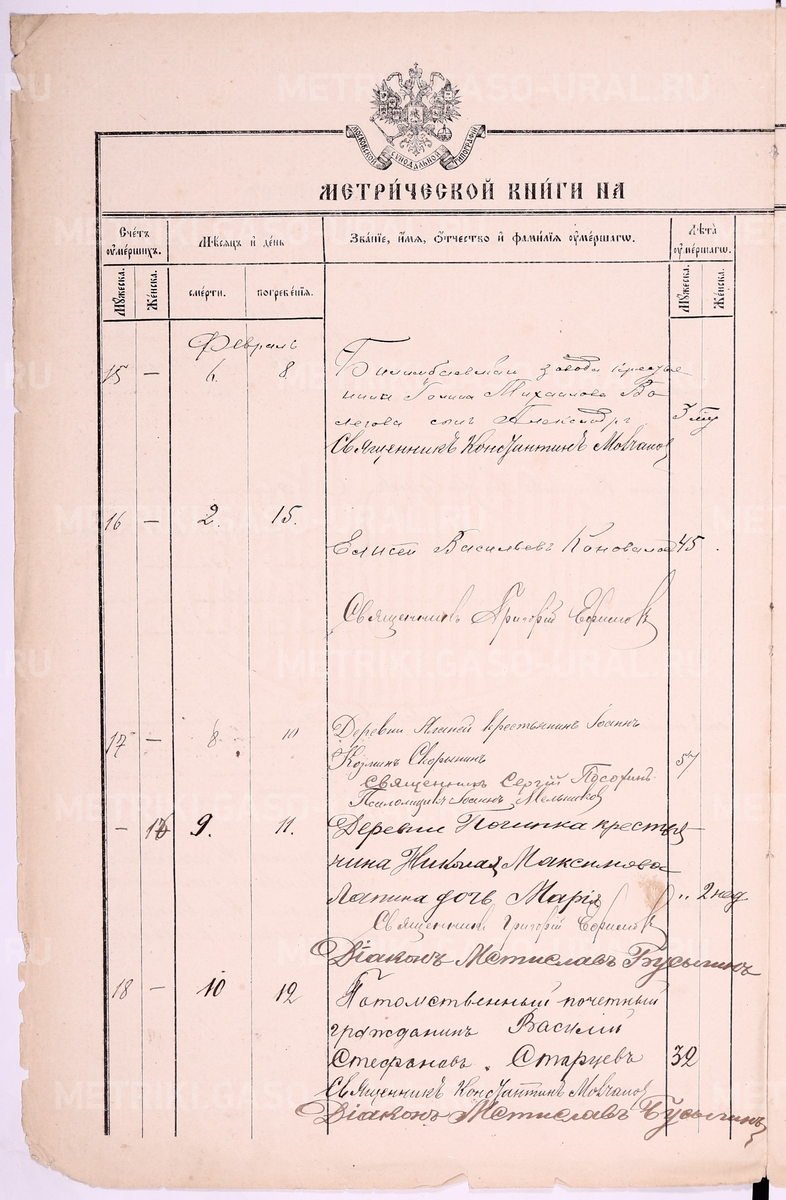 METRIKI.GASO-URAL.RU
МОСКОВСКОЙ СѴНОДАЛЬНОЙ ТИПОГРАФІИ
МЕТРИ́ЧЕСКОЙ КНИ́ГИ НА
Сче́тъ ᲂу҆ме́ршихъ.
Мѣ́сѧцъ и҆ де́нь
Зва́нїе, и҆́мѧ, ѻ҆́тчество и҆ фами́лїѧ ᲂу҆ме́ршагѡ.
Лѣ̀та ᲂу҆ме́ршагѡ.
Мꙋ́жеска.
Же́нска.
сме́рти.
погребе́нїѧ.
Мꙋ́жеска.
Же́нска.
Февраль
15 — 6. 8. Билимбаевскаго завода крестья
нина Михаилова Во
легова сынъ Александръ 3
Священникъ Константинъ Мовчанов
16 — 2. 15.
Елисей Васильевъ Коновалов 45.
Священникъ Григорій Ефимовъ
17 — 8. 10 Деревни крестьянинъ Іоаннъ
Козминъ Скорынинъ 57
Священникъ Сергій
Псаломщикъ Іоаннъ Мельниковъ
— 16 9. 11. Деревни Починка крестья
нина Николая Максимова
Лапина дочь Марія „ 2 нед
Священникъ Григорій Ефимовъ
Діаконъ Мстиславъ Бусыгинъ
18 — 10 12 Потомственный почетный
гражданинъ Василій
Стефановъ Старцевъ 32
Священникъ Константинъ Мовчанов
Діаконъ Мстиславъ Бусыгинъ